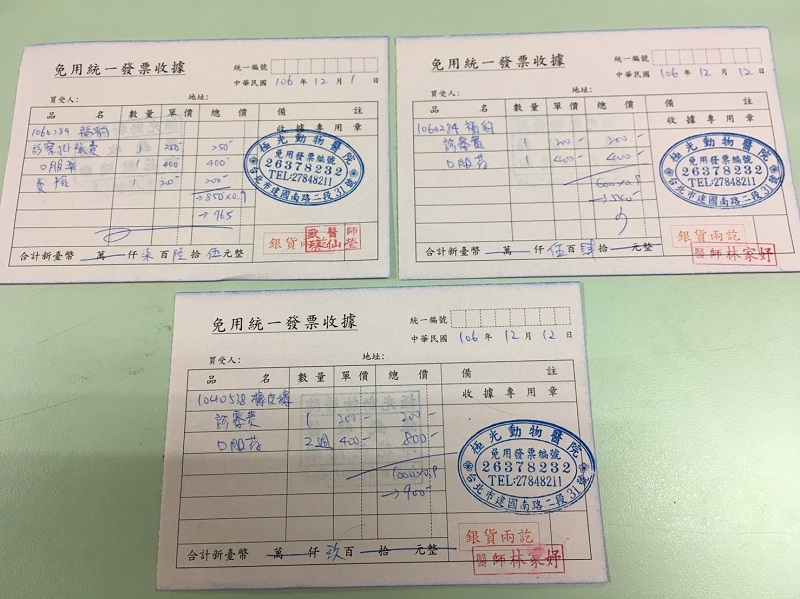 免用統一發票收據
統一編號
中華民國 106 年 12 月 1 日
買受人: 地址:
品名 數量 單價 總價 備註
收據專用章
1060284 福豹
診察掛號費 1 250- 250-
口服藥 400- 400-
1 200- 200-
→850x0.9
→765
極光動物醫院
免用發票編號
26378232
TEL:27848211
台北市建國南路二段31號
銀貨兩訖
獸醫師
合計新臺幣 萬 仟 柒 百 陸 拾 伍 元整
免用統一發票收據
統一編號
中華民國 106 年 12 月 12 日
買受人: 地址:
品名 數量 單價 總價 備註
收據專用章
1060284 福豹
診察費 1 200- 200-
口服药 1 400- 400-
600x0.9
→540-
極光動物醫院
免用發票編號
26378232
TEL:27848211
台北市建國南路二段31號
銀貨兩訖
醫師林家妤
合計新臺幣 萬 仟 伍 百 肆 拾 元整
免用統一發票收據
統一編號
中華民國 106 年 12 月 12 日
買受人: 地址:
品名 數量 單價 總價 備註
收據專用章
1040538 橡皮擦
診察費 1 200- 200-
口服药 2週 400- 800-
1000x0.9
→900-
極光動物醫院
免用發票編號
26378232
TEL:27848211
台北市建國南路二段31號
銀貨兩訖
醫師林家妤
合計新臺幣 萬 仟 玖 百 拾 元整